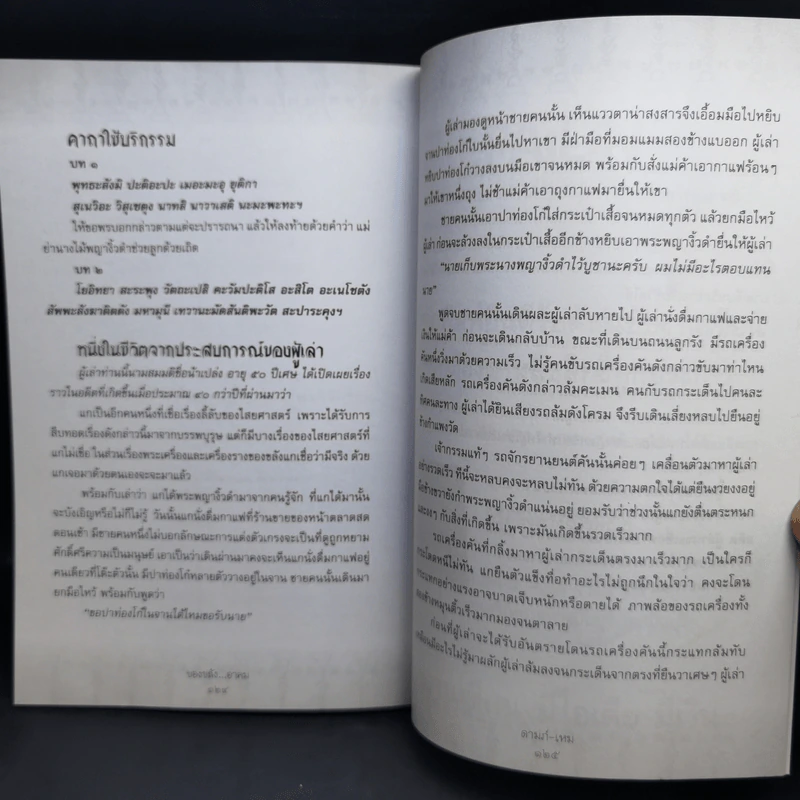 คาถาใช้บริกรรม
บท ๑
พุทธะสังมิ ปะติอะปะ เมอะมะอุ ยุติกา
สุเนวิอะ วิสุเชตุง นาทสิ นาวาเสติ นะมะพะทะฯ
ให้ขอพรบอกกล่าวตามแต่จะปรารถนา แล้วให้ลงท้ายด้วยคำว่า แม่
ย่านางไม้พญางิ้วดำช่วยลูกด้วยเถิด
บท ๒
โยอิทยา สะระพุง วัตถะเปสิ คะวัมปะติโส อะสิโต อะเนโชตัง
สัพพะสังฆาติตตัง มหามุนี เทรานะมัตสันติพะวัต สะปาระคุงฯ
หนึ่งในชีวิตจากประสบการณ์ของผู้เล่า
ผู้เล่าท่านนี้นามสมมติชื่อน้าเปล่ง อายุ ๕๐ ปีเศษ ได้เปิดเผยเรื่อง
ราวในอดีตที่เกิดขึ้นเมื่อประมาณ ๔๐ กว่าปีที่ผ่านมาว่า
แกเป็นอีกคนหนึ่งที่เชื่อเรื่องลี้ลับของไสยศาสตร์ เพราะได้รับการ
สืบทอดเรื่องดังกล่าวนี้มาจากบรรพบุรุษ แต่ก็มีบางเรื่องของไสยศาสตร์ที่
แกไม่เชื่อ ในส่วนเรื่องพระเครื่องและเครื่องรางของขลังแกเชื่อว่ามีจริง ด้วย
แกเจอมาด้วยตนเองจะจะมาแล้ว
พร้อมกับเล่าว่า แกได้พระพญางิ้วดำมาจากคนรู้จัก ที่แกได้มานั้น
จะบังเอิญหรือไม่ก็ไม่รู้ วันนั้นแกนั่งดื่มกาแฟที่ร้านขายของหน้าตลาดสด
ตอนเช้า มีชายคนหนึ่งไม่บอกลักษณะการแต่งตัวเกรงจะเป็นที่ดูถูกหยาม
ศักดิ์ศรีความเป็นมนุษย์ เอาเป็นว่าเดินผ่านมาคงจะเห็นแกนั่งดื่มกาแฟอยู่
คนเดียวที่โต๊ะตัวนั้น มีปาท่องโก๋หลายตัววางอยู่ในจาน ชายคนนั้นเดินมา
ยกมือไหว้ พร้อมกับพูดว่า
"ขอปาท่องโก๋ในจานได้ไหมขอรับนาย"
ของขลัง...อาคม
๑๒๔
ผู้เล่ามองดูหน้าชายคนนั้น เห็นแววตาน่าสงสารจึงเอื้อมมือไปหยิบ
จานปาท่องโก๋ใบนั้นยื่นไปหาเขา มีฝ่ามือที่มอมแมมสองข้างแบออก ผู้เล่า
หยิบปาท่องโก๋วางลงบนมือเขาจนหมด พร้อมกับสั่งแม่ค้าเอากาแฟร้อนๆ
มาให้เขาหนึ่งถุง ไม่ช้าแม่ค้าเอาถุงกาแฟมายื่นให้เขา
ชายคนนั้นเอาปาท่องโก๋ใส่กระเป๋าเสื้อจนหมดทุกตัว แล้วยกมือไหว้
ผู้เล่า ก่อนจะล้วงลงในกระเป๋าเสื้ออีกข้างหยิบเอาพระพญางิ้วดำยื่นให้ผู้เล่า
"นายเก็บพระนางพญางิ้วดำไว้บูชานะครับ ผมไม่มีอะไรตอบแทน
นาย"
พูดจบชายคนนั้นเดินผละผู้เล่าลับหายไป ผู้เล่านั่งดื่มกาแฟและจ่าย
เงินให้แม่ค้า ก่อนจะเดินกลับบ้าน ขณะที่เดินบนถนนลูกรัง มีรถเครื่อง
คันหนึ่งวิ่งมาด้วยความเร็ว ไม่รู้คนขับรถเครื่องคันดังกล่าวขับมาท่าไหน
เกิดเสียหลัก รถเครื่องคันดังกล่าวล้มคะเมน คนกับรถกระเด็นไปคนละ
ทิศคนละทาง ผู้เล่าได้ยินเสียงรถล้มดังโครม จึงรีบเดินเลี่ยงหลบไปยืนอยู่
ข้างกำแพงวัด
เจ้ากรรมแท้ๆ รถจักรยานยนต์คันนั้นค่อยๆ เคลื่อนตัวมาหาผู้เล่า
อย่างรวดเร็ว ทีนี้จะหลบคงจะหลบไม่ทัน ด้วยความตกใจได้แต่ยืนงวยงงอยู่
มือข้างขวายังกำพระพญางิ้วดำแน่นอยู่ ยอมรับว่าช่วงนั้นแกยังตื่นตระหนก
และงงๆ กับสิ่งที่เกิดขึ้น เพราะมันเกิดขึ้นรวดเร็วมาก
รถเครื่องคันที่กลิ้งมาหาผู้เล่ากระเด็นตรงมาเร็วมาก เป็นใครก็
กระโดดหนีไม่ทัน แกยืนตัวแข็งที่อทำอะไรไม่ถูกนึกในใจว่า คงจะโดน
กระแทกอย่างแรงอาจบาดเจ็บหนักหรือตายได้ ภาพล้อของรถเครื่องทั้ง
สองข้างหมุนติ้วเร็วมากมองจนตาลาย
ก่อนที่ผู้เล่าจะได้รับอันตรายโดนรถเครื่องคันนี้กระแทกล้มทับ
เหมือนมีอะไรไม่รู้มาผลักผู้เล่าล้มลงจนกระเด็นจากตรงที่ยืนวาเศษๆ ผู้เล่า
ตามภ์-เหม
๑๒๕